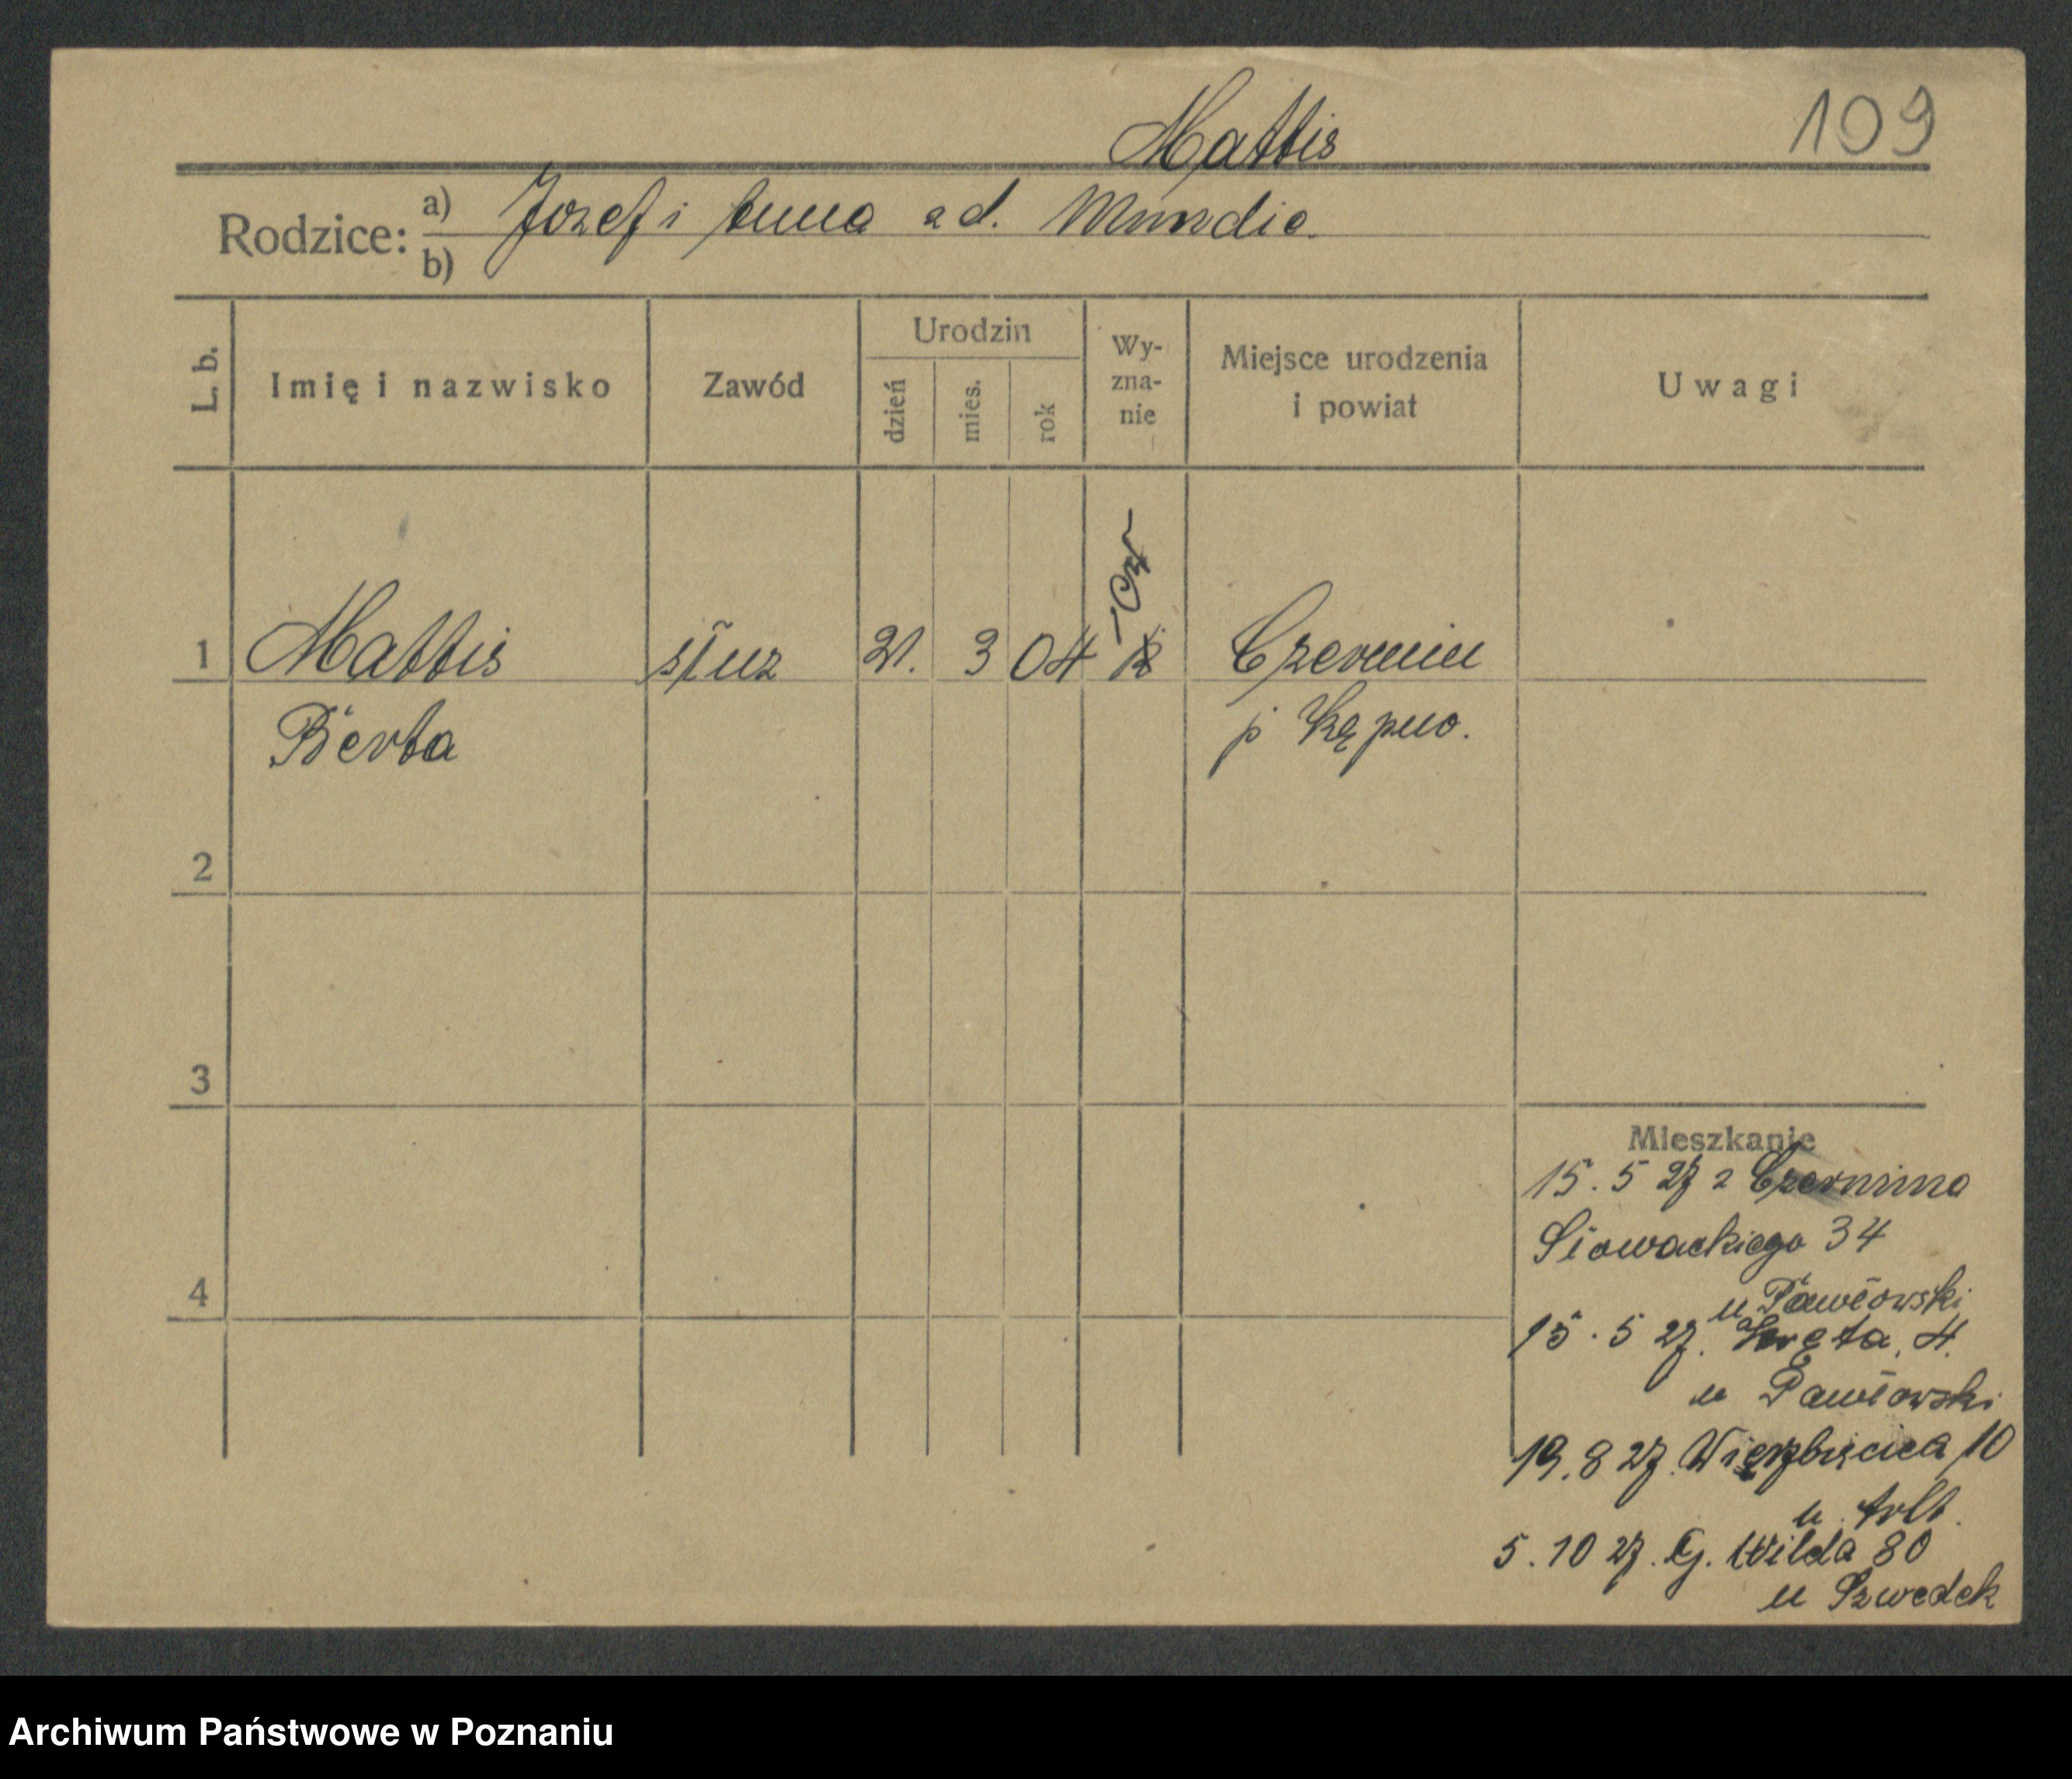 Mattis
109
Rodzice: a) Jozef i Anna zd. Mundie.
b)
L. b.
Imię i nazwisko
Zawód
Urodzin
dzień
mies.
rok
Wy-
zna-
nie
Miejsce urodzenia
i powiat
Uwagi
1 Mattis służ 21. 3 04 Czermin
Berta p Kępno.
2
3
4
Mieszkanie
15. 5 27 z Czermina
Słowackiego 34
u Pawłowski
15. 5 27. Kręta, 4.
u Pawłowski
19. 8 27. Wierzbięcica 10
u Arlt.
5. 10 27. G. Wilda 80
u Szwedek
Archiwum Państwowe w Poznaniu